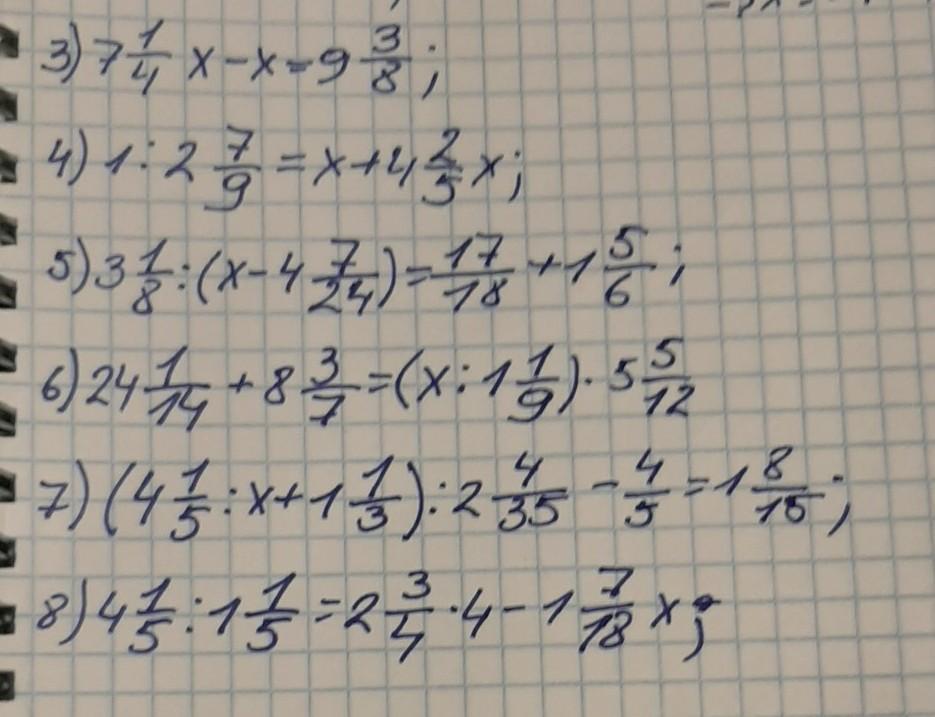 3) 7 1/4 x - x = 9 3/8 ;
4) 1 : 2 7/9 = x + 4 2/5 x ;
5) 3 1/8 : (x - 4 7/24) = 17/18 + 1 5/6 ;
6) 24 1/14 + 8 3/7 = (x : 1 1/9) · 5 5/12
7) (4 1/5 : x + 1 1/3) : 2 4/35 - 4/5 = 1 8/15 ;
8) 4 1/5 : 1 1/5 = 2 3/4 · 4 - 1 7/18 x ;